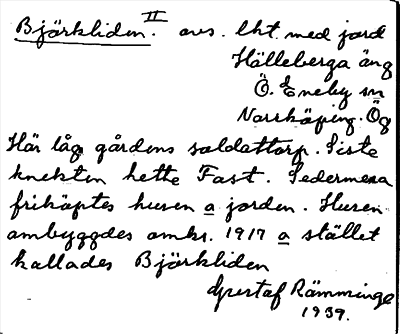 Björkliden. II avs. lht. med jord
Hälleberga äng
Ö. Eneby sn
Norrköping. Ög
Här låg gårdens soldattorp. Siste
knekten hette Fast. Sedermera
friköptes husen a jorden. Husen
ombyggdes omkr. 1917 a stället
kallades Björkliden
Gustaf Rämminge
1939.